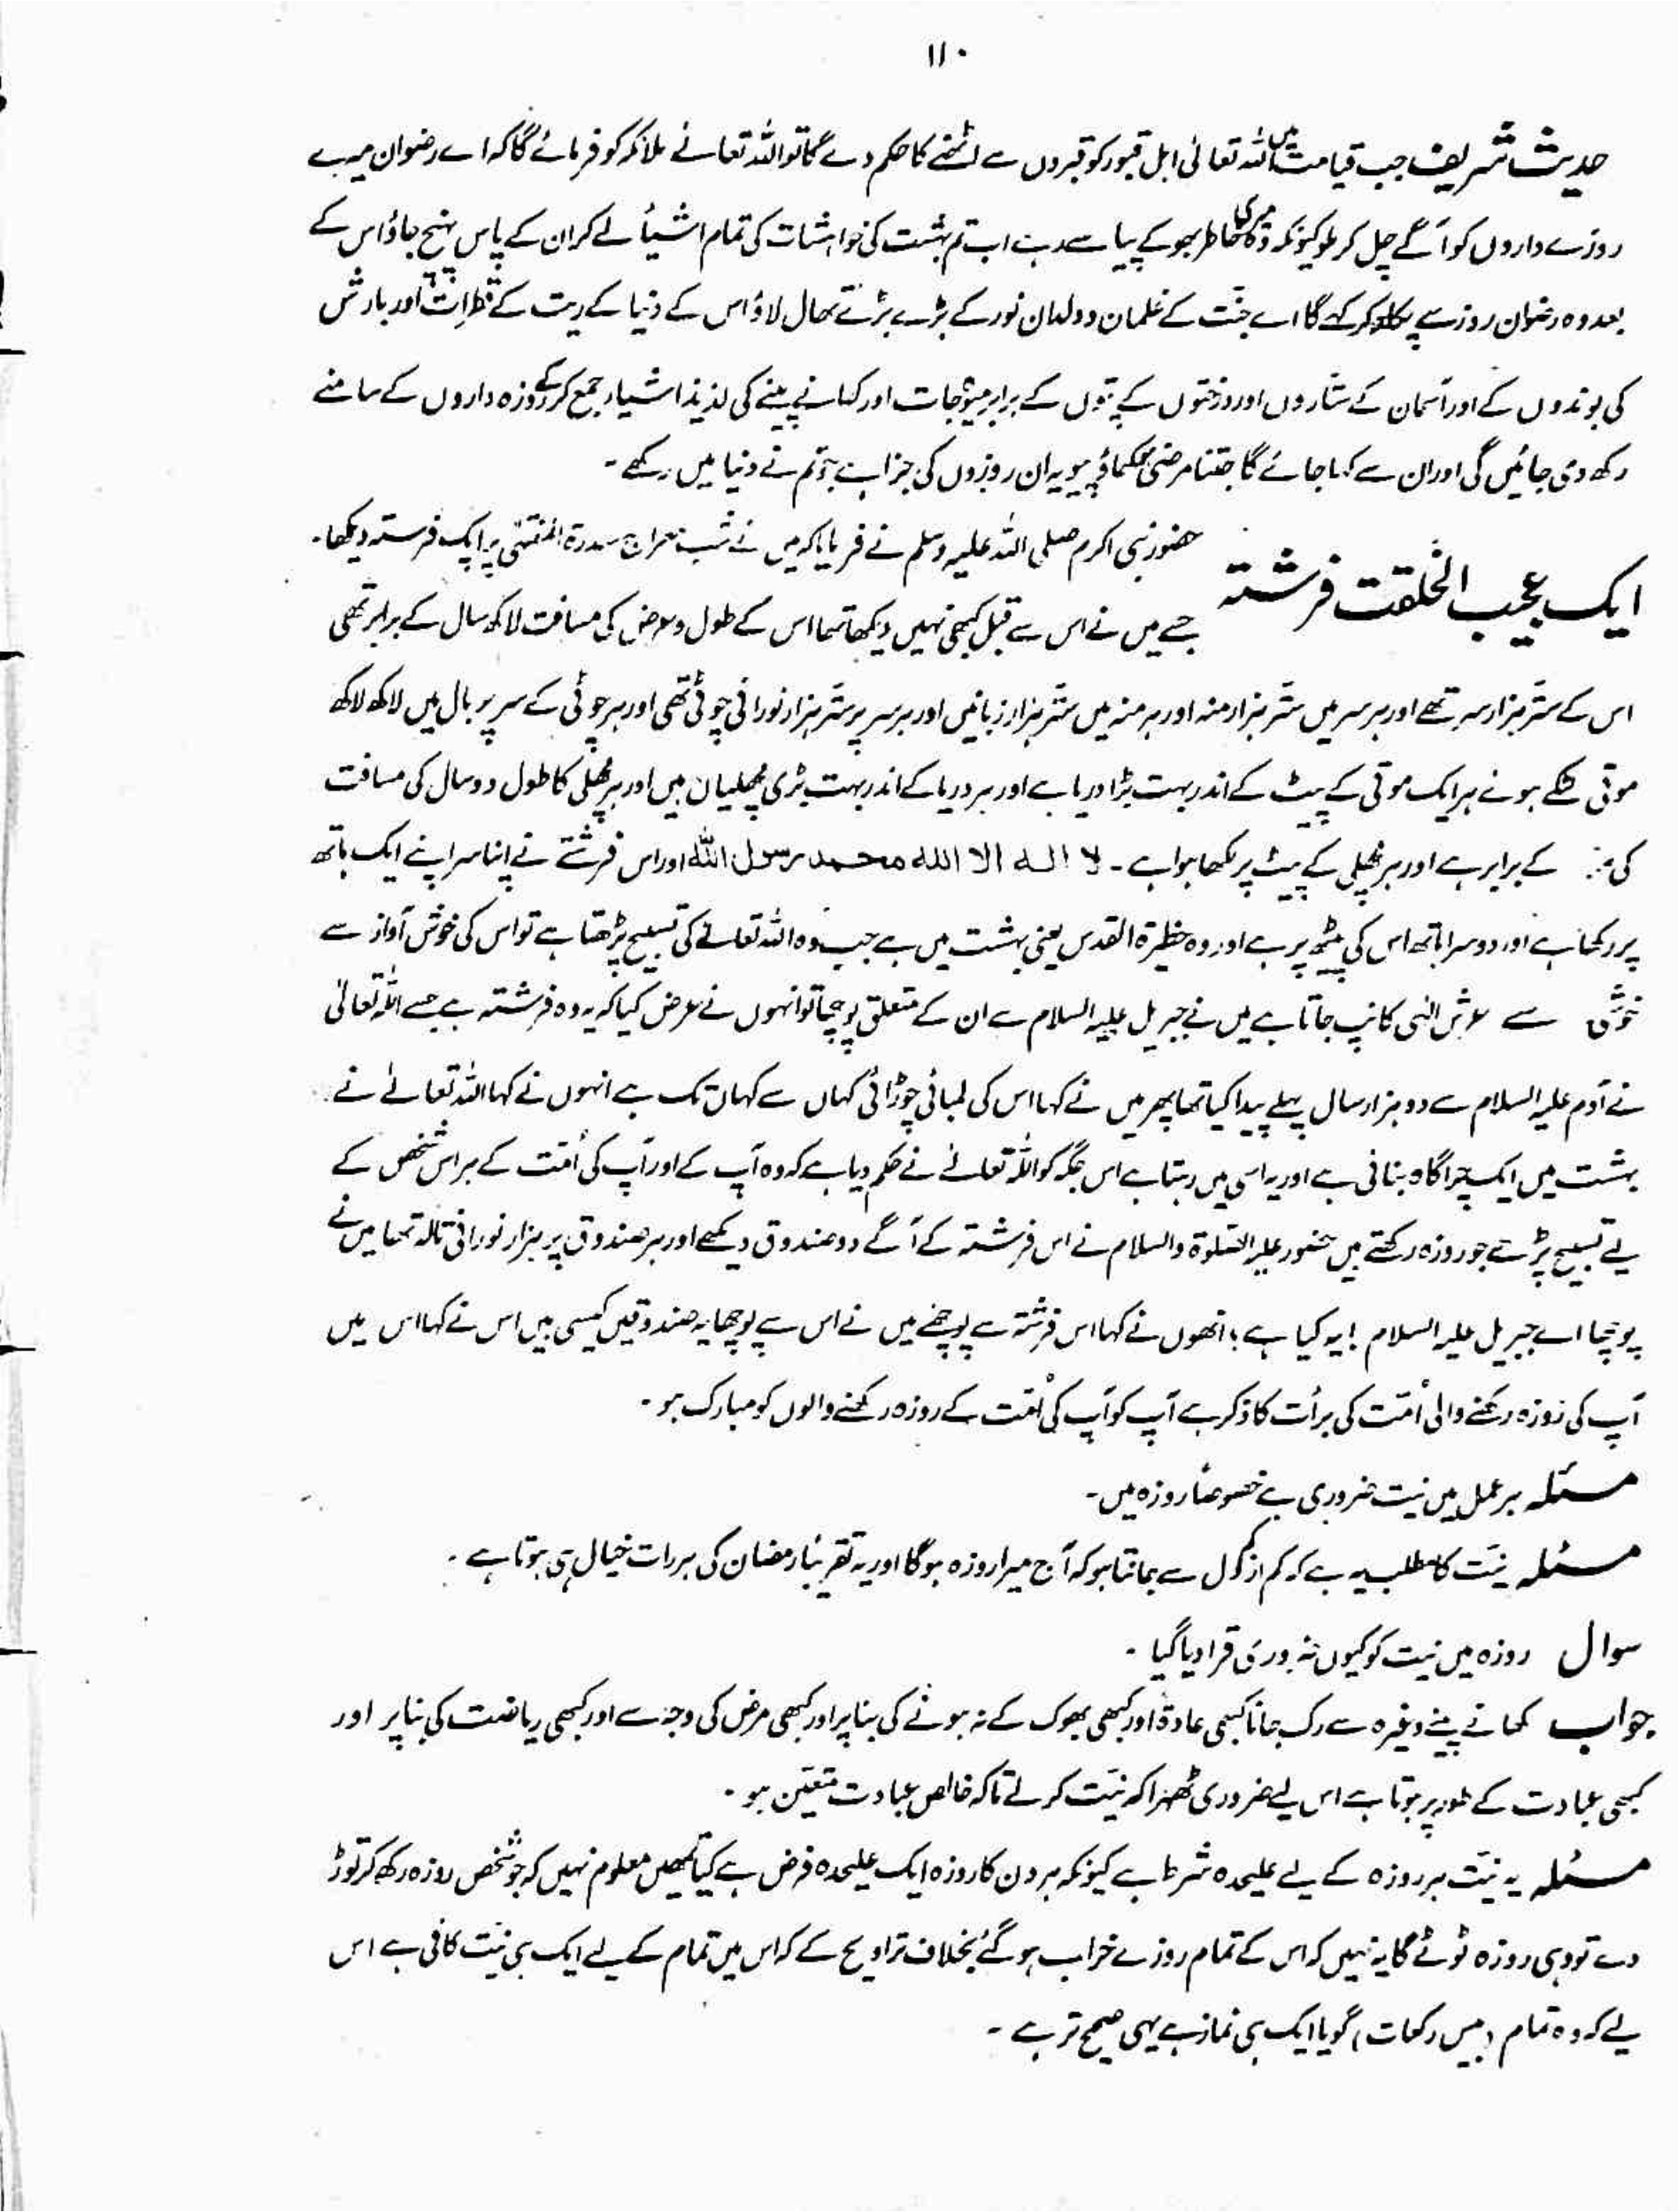 ۱۱۰
حدیث شریف جب قیامت میں اللہ تعالیٰ اہل قبور کو قبروں سے اٹھنے کا حکم دے گا تو اللہ تعالےٰ ملائکہ کو فرمائے گا کہ اے رضوان میرے
روزے داروں کو آگے چل کر ملو کیونکہ وہ میری خاطر بھوکے پیاسے رہے اب تم بہشت کی خواہشات کی تمام اشیأ لے کر ان کے پاس پہنچ جاؤ اس کے
بعد وہ رضوان روز سے پکار کر کہے گا اے جنّت کے غلمان و ولدان نور کے بڑے بڑے تھال لاؤ اس کے دنیا کے ریت کے قطرات اور بارش
کی بوندوں کے اور آسمان کے ستاروں اور درختوں کے پتوں کے برابر میوہ جات اور کھانے پینے کی لذیذ اشیاء جمع کرکے روزہ داروں کے سامنے
رکھ دی جائیں گی اور ان سے کہا جائے گا جتنا مرضی ہو کھاؤ پیو یہ ان روزوں کی جزا ہے جو تم نے دنیا میں رکھے ۔
ایک عجیب الخلقت فرشتہ
حضور نبی اکرم صلی اللہ علیہ وسلم نے فرمایا کہ میں نے شب معراج سدرۃ المنتہیٰ پر ایک فرشتہ دیکھا۔
جسے میں نے اس سے قبل کبھی نہیں دیکھا تھا اس کے طول و عرض کی مسافت لاکھ سال کے برابر تھی
اس کے ستّر ہزار سر تھے اور ہر سر میں ستّر ہزار منہ اور ہر منہ میں ستّر ہزار زبانیں اور ہر سر پر ستّر ہزار نورانی چوٹی تھی اور ہر چوٹی کے سر پر بال میں لاکھ لاکھ
موتی لٹکے ہوئے ہر ایک موتی کے پیٹ کے اندر بہت بڑا دریا ہے اور ہر دریا کے اندر بہت بڑی مچھلیاں ہیں اور ہر مچھلی کا طول دو سال کی مسافت
کی کے برابر ہے اور ہر مچھلی کے پیٹ پر لکھا ہوا ہے ۔ لا الہ الا اللہ محمد رسول اللہ اور اس فرشتے نے اپنا سر اپنے ایک ہاتھ
پر رکھا ہے اور دوسرا ہاتھ اس کی پیٹھ پر ہے اور وہ حظیرۃ القدس یعنی بہشت میں ہے جب وہ اللہ تعالےٰ کی تسبیح پڑھتا ہے تو اس کی خوش آواز سے
خوشی سے عرش الٰہی کانپ جاتا ہے میں نے جبریل علیہ السلام سے ان کے متعلق پوچھا تو انہوں نے عرض کیا کہ یہ وہ فرشتہ ہے جسے اللہ تعالیٰ
نے آدم علیہ السلام سے دو ہزار سال پہلے پیدا کیا تھا پھر میں نے کہا اس کی لمبائی چوڑائی کہاں سے کہاں تک ہے انہوں نے کہا اللہ تعالےٰ نے
بہشت میں ایک چراگاہ بنائی ہے اور یہ اسی میں رہتا ہے اس جگہ کو اللہ تعالےٰ نے حکم دیا ہے کہ وہ آپ کے اور آپ کی اُمت کے ہر اس شخص کے
لیے تسبیح پڑھے جو روزہ رکھتے ہیں حضور علیہ الصلوۃ والسلام نے اس فرشتہ کے آگے دو صندوق دیکھے اور ہر صندوق پر ہزار نورانی تالہ تھا میں نے
پوچھا اے جبریل علیہ السلام ! یہ کیا ہے ؛ انھوں نے کہا اس فرشتہ سے پوچھئے میں نے اس سے پوچھا یہ صندوقیں کیسی ہیں اس نے کہا اس میں
آپ کی روزہ رکھنے والی اُمّت کی برأت کا ذکر ہے آپ کو آپ کی اُمّت کے روزہ رکھنے والوں کو مبارک ہو ۔
مسئلہ ہر عمل میں نیت ضروری ہے خصوصًا روزہ میں ۔
مسئلہ نیّت کا مطلب یہ ہے کہ کم از کم دل سے جانتا ہو کہ آج میرا روزہ ہوگا اور یہ تقریبًا رمضان کی ہر رات خیال ہی ہوتا ہے ۔
سوال روزہ میں نیت کو کیوں ضروری قرار دیا گیا ۔
جواب کھانے پینے وغیرہ سے رک جانا کبھی عادۃ اور کبھی بھوک کے نہ ہونے کی بنا پر اور کبھی مرض کی وجہ سے اور کبھی ریاضت کی بنا پر اور
کبھی عبادت کے طور پر ہوتا ہے اس لیے ضروری ٹھہرا کہ نیّت کرلے تاکہ خالص عبادت متعیّن ہو ۔
مسئلہ یہ نیّت ہر روزہ کے لیے علیحدہ شرط ہے کیونکہ ہر دن کا روزہ ایک علیحدہ فرض ہے کیا تمھیں معلوم نہیں کہ جو شخص روزہ رکھ کر توڑ
دے تو وہی روزہ ٹوٹے گا یہ نہیں کہ اس کے تمام روزے خراب ہو گئے بخلاف تراویح کے کہ اس میں تمام کے لیے ایک ہی نیّت کافی ہے اس
لیے کہ وہ تمام (بیس رکعات) گویا ایک ہی نماز ہے یہی صحیح تر ہے ۔